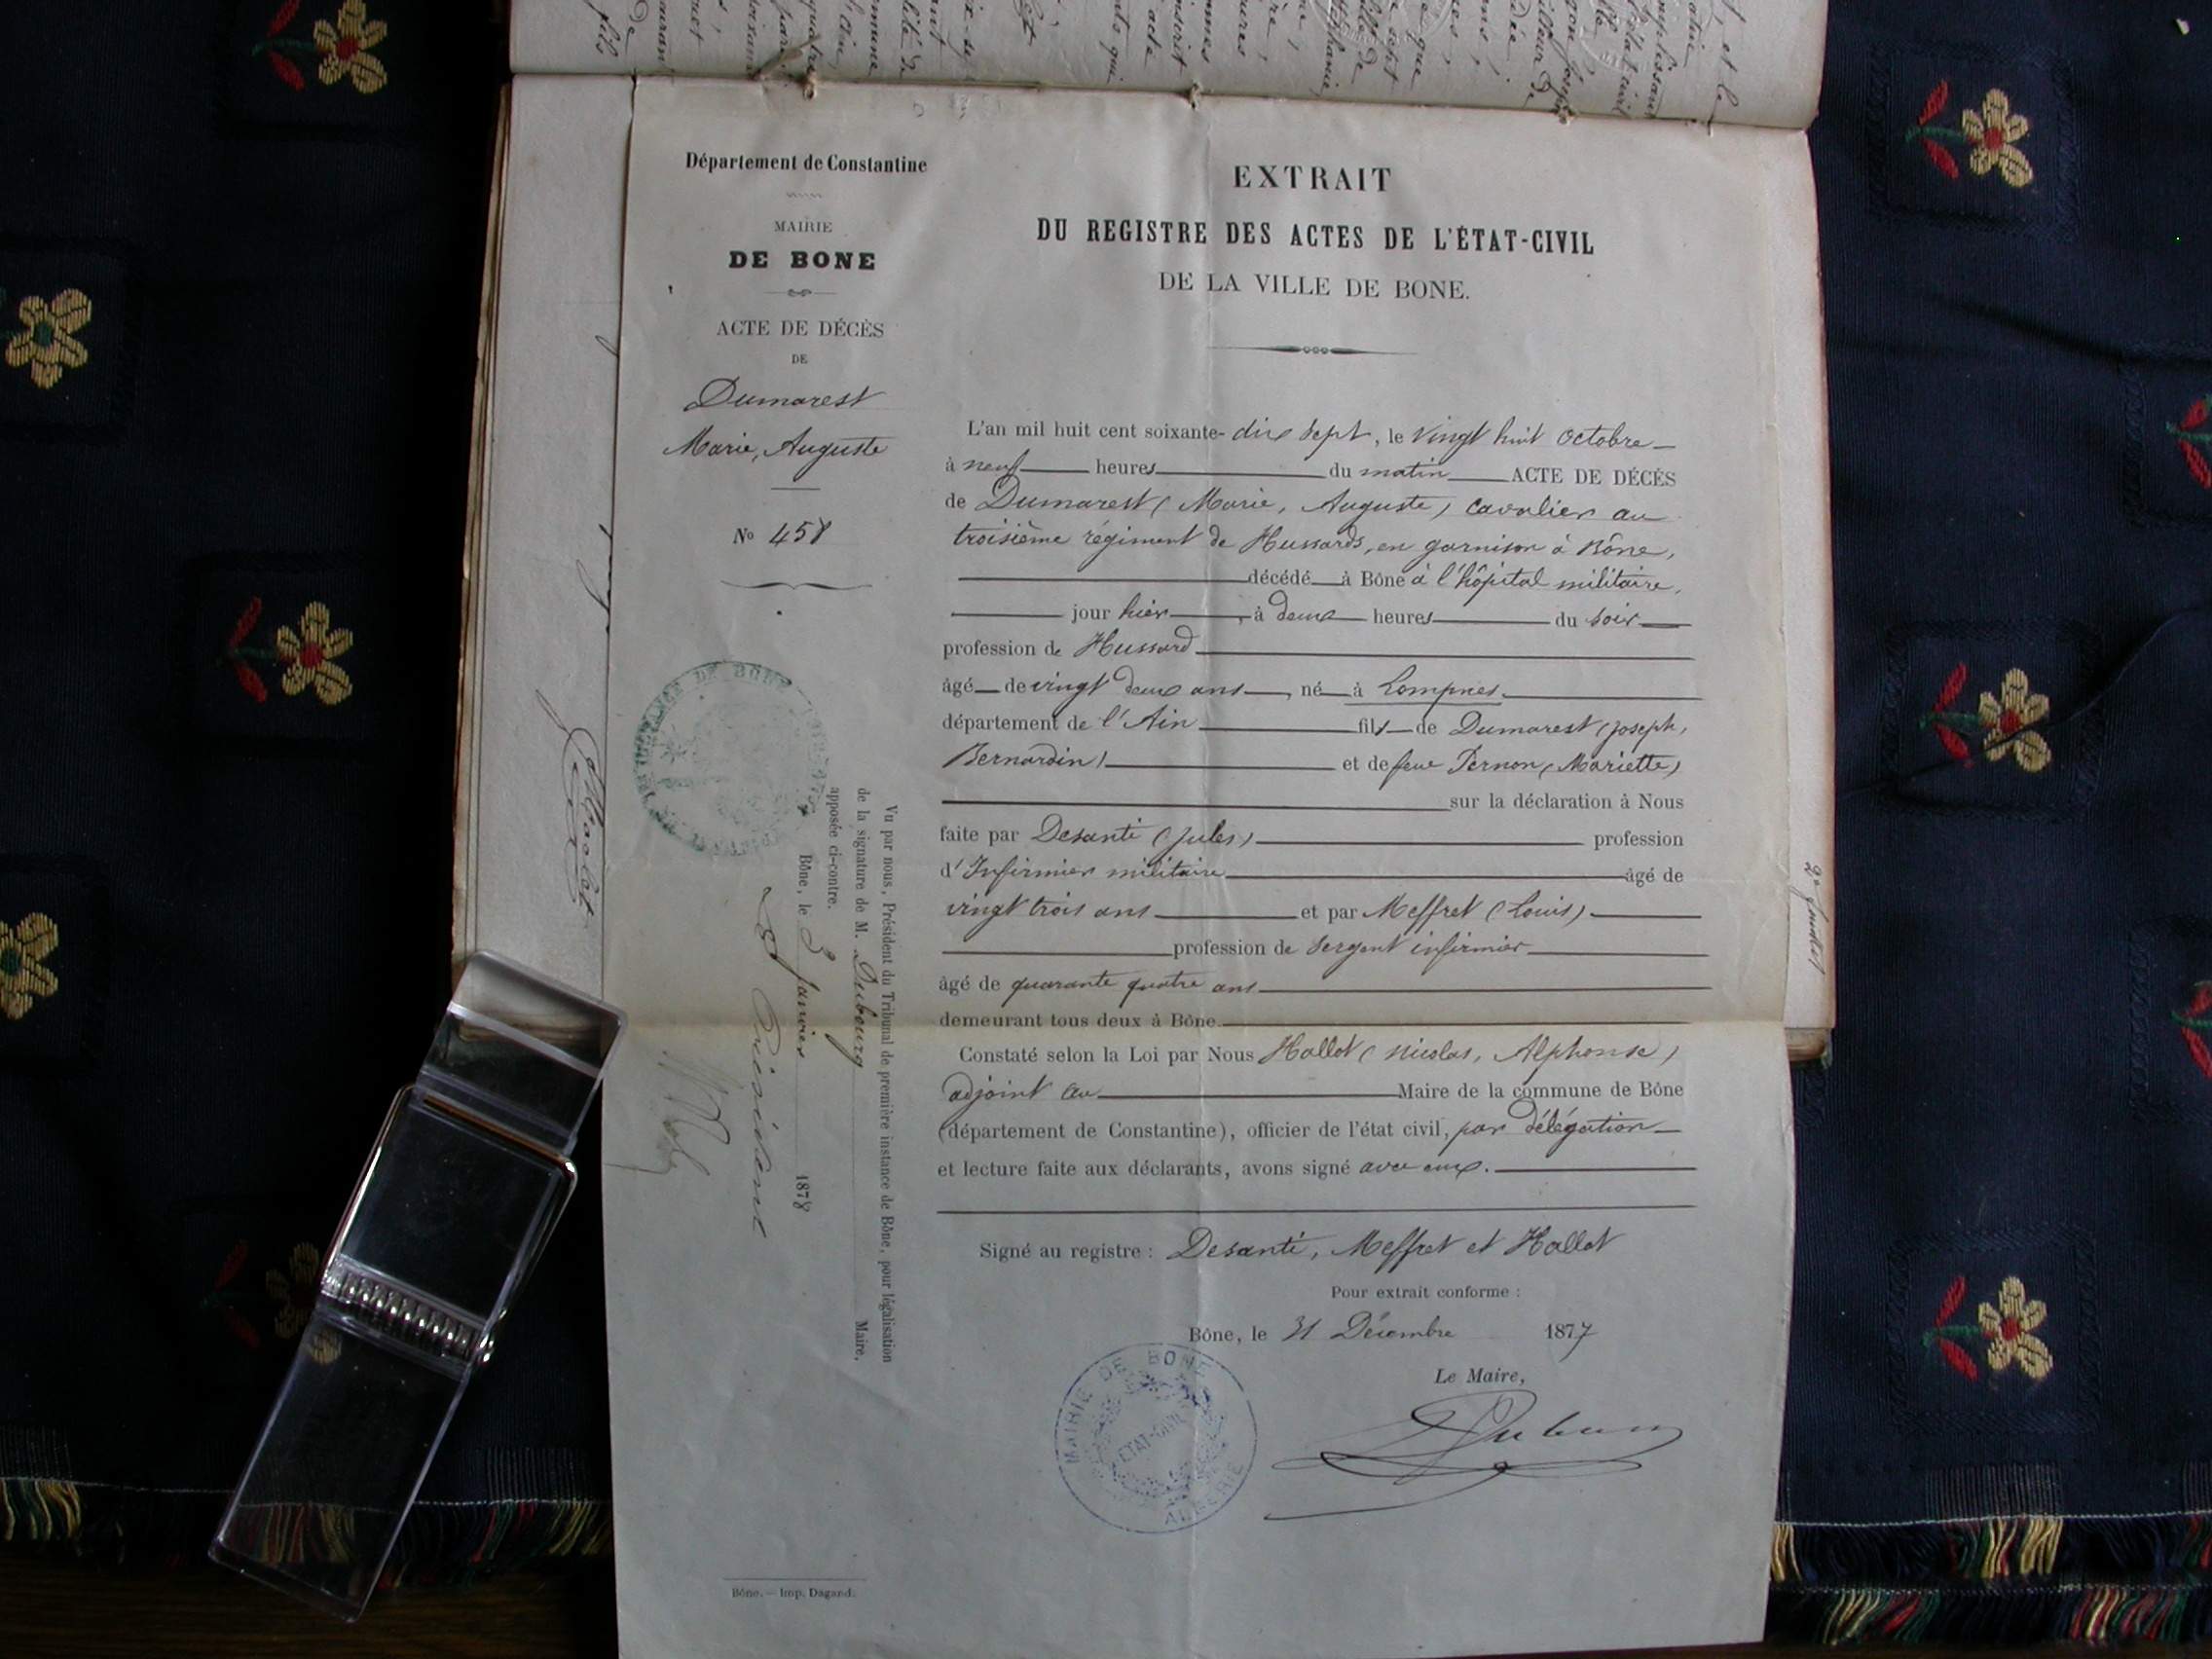 Département de Constantine
MAIRIE
DE BONE
ACTE DE DÉCÈS
DE
Dumarest
Marie, Auguste
No 458
EXTRAIT
DU REGISTRE DES ACTES DE L'ÉTAT-CIVIL
DE LA VILLE DE BONE.
L'an mil huit cent soixante- dix sept, le vingt huit octobre
à neuf heures du matin ACTE DE DÉCÈS
de Dumarest (Marie, Auguste) cavalier au
troisième régiment de Hussards, en garnison à Bône,
décédé à Bône à l'hôpital militaire,
jour hier, à deux heures du soir
profession de Hussard
âgé de vingt deux ans, né à Lompnes.
département de l'Ain fils de Dumarest (Joseph,
Bernardin) et de feue Pernon (Mariette)
sur la déclaration à Nous
faite par Desanti (Jules) profession
d'Infirmier militaire âgé de
vingt trois ans et par Meffret (Louis)
profession de sergent infirmier
âgé de quarante quatre ans
demeurant tous deux à Bône.
Constaté selon la Loi par Nous Hallot (Nicolas, Alphonse)
adjoint au Maire de la commune de Bône
(département de Constantine), officier de l'état civil, par délégation
et lecture faite aux déclarants, avons signé avec eux.
Signé au registre : Desanti, Meffret et Hallot
Pour extrait conforme :
Bône, le 31 Décembre 1877
Le Maire,
MAIRIE DE BONE
ETAT-CIVIL
ALGERIE
Vu par nous, Président du Tribunal de première instance de Bône, pour légalisation
de la signature de M. Dubourg Maire,
apposée ci-contre.
Bône, le 3 Janvier 1878
Le Président
DE BONE
Bône. — Imp. Dagand.